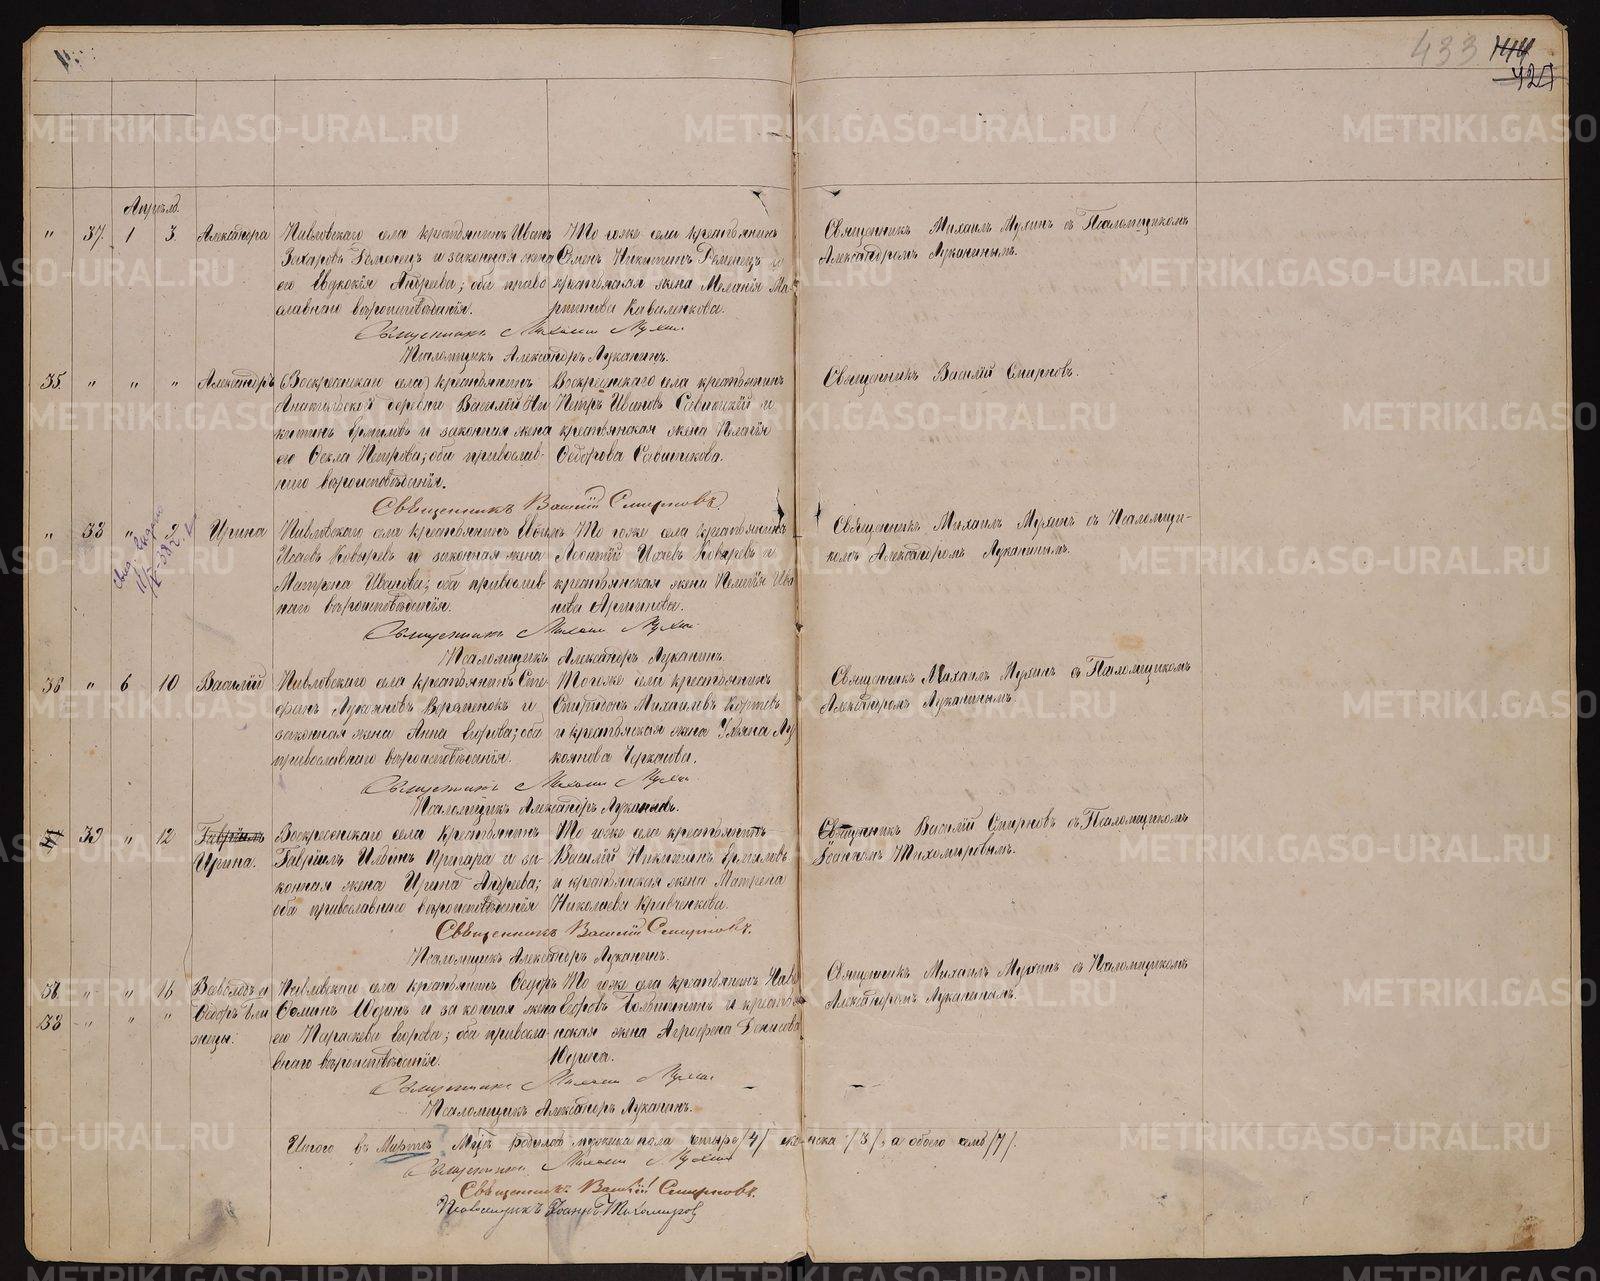 433
Апрѣль.
" 37. 1 3. Александра
Павловскаго села крестьянинъ Иванъ
Захаровъ Деменецъ и законная жена
его Евдокія Андреева; оба право
славнаго вѣроисповѣданія.
Того же села крестьянинъ
Семенъ Никитинъ Деменецъ и
крестьянская жена Меланія Ма-
ртинова Коваленкова.
Священникъ Михаилъ Мухинъ съ Псаломщикомъ
Александромъ Луканинымъ.
Священникъ Михаилъ Мухин
Псаломщикъ Александръ Луканинъ.
35. " " " Александръ
(Воскресенскаго села) крестьянинъ
деревни Василій Ни
китинъ Ермиловъ и законная жена
его Ѳекла Петрова; оба православ-
наго вѣроисповѣданія.
Воскресенскаго села крестьянинъ
Петръ Ивановъ Савицкій и
крестьянская жена Пелагія
Ѳедорова
Священникъ Василій Смирновъ.
Священникъ Василій Смирновъ.
" 38 " 2 Ирина
Павловскаго села крестьянинъ Иванъ
Исаевъ Коваревъ и законная жена
Матрона Иванова; оба православ
наго вѣроисповѣданія.
Того же села крестьянинъ
Леонтій Исаевъ Коваревъ и
крестьянская жена Пелагія Ива
нова
Священникъ Михаилъ Мухинъ съ Псаломщи-
комъ Александромъ Луканинымъ.
Священникъ Михаил Мухин
Псаломщикъ Александръ Луканинъ.
36 " 6 10 Василій
Павловскаго села крестьянинъ Сте
фанъ Лукьяновъ и
законная жена Анна Егорова; оба
православнаго вѣроисповѣданія.
Того же села крестьянинъ
Спиридонъ Михаилевъ
и крестьянская жена Ульяна Лу
кьянова Черкасова.
Священникъ Михаилъ Мухинъ съ Псаломщикомъ
Александромъ Луканинымъ.
Священникъ Михаил Мухин
Псаломщикъ Александръ Луканинъ.
39 " 12 Гавріилъ
Ирина.
Воскресенскаго села крестьянинъ
Гавріилъ Ильинъ и за-
конная жена Ирина Андреева;
оба православнаго вѣроисповѣданія
Того же села крестьянинъ
Василій Никитинъ Ермиловъ
и крестьянская жена Матрена
Николаева Кривченкова.
Священникъ Василій Смирновъ съ Псаломщикомъ
Іоанномъ Тихомировымъ.
Священникъ Василій Смирновъ.
Псаломщикъ Александръ Луканинъ.
" " 16 Всеволодъ и
38 " " " Ѳедоръ бли
знецы.
Павловскаго села крестьянинъ
Ѳоминъ Юдинъ и законная жена
его Параскева Егорова; оба правосла-
внаго вѣроисповѣданія.
Того же села крестьянинъ
и крестья
нская жена Денисова
Юдина.
Священникъ Михаилъ Мухинъ съ Псаломщикомъ
Александромъ Луканинымъ.
Священникъ Михаил Мухин
Псаломщикъ Александръ Луканинъ.
Итого въ Мартѣ м-цѣ родилось мужеска пола четыре /4/ женска /3/, а обоего семь /7/.
Священникъ Михаил Мухин
Священникъ Василій Смирновъ.
Псаломщикъ Іоаннъ Тихомиров
METRIKI.GASO-URAL.RU